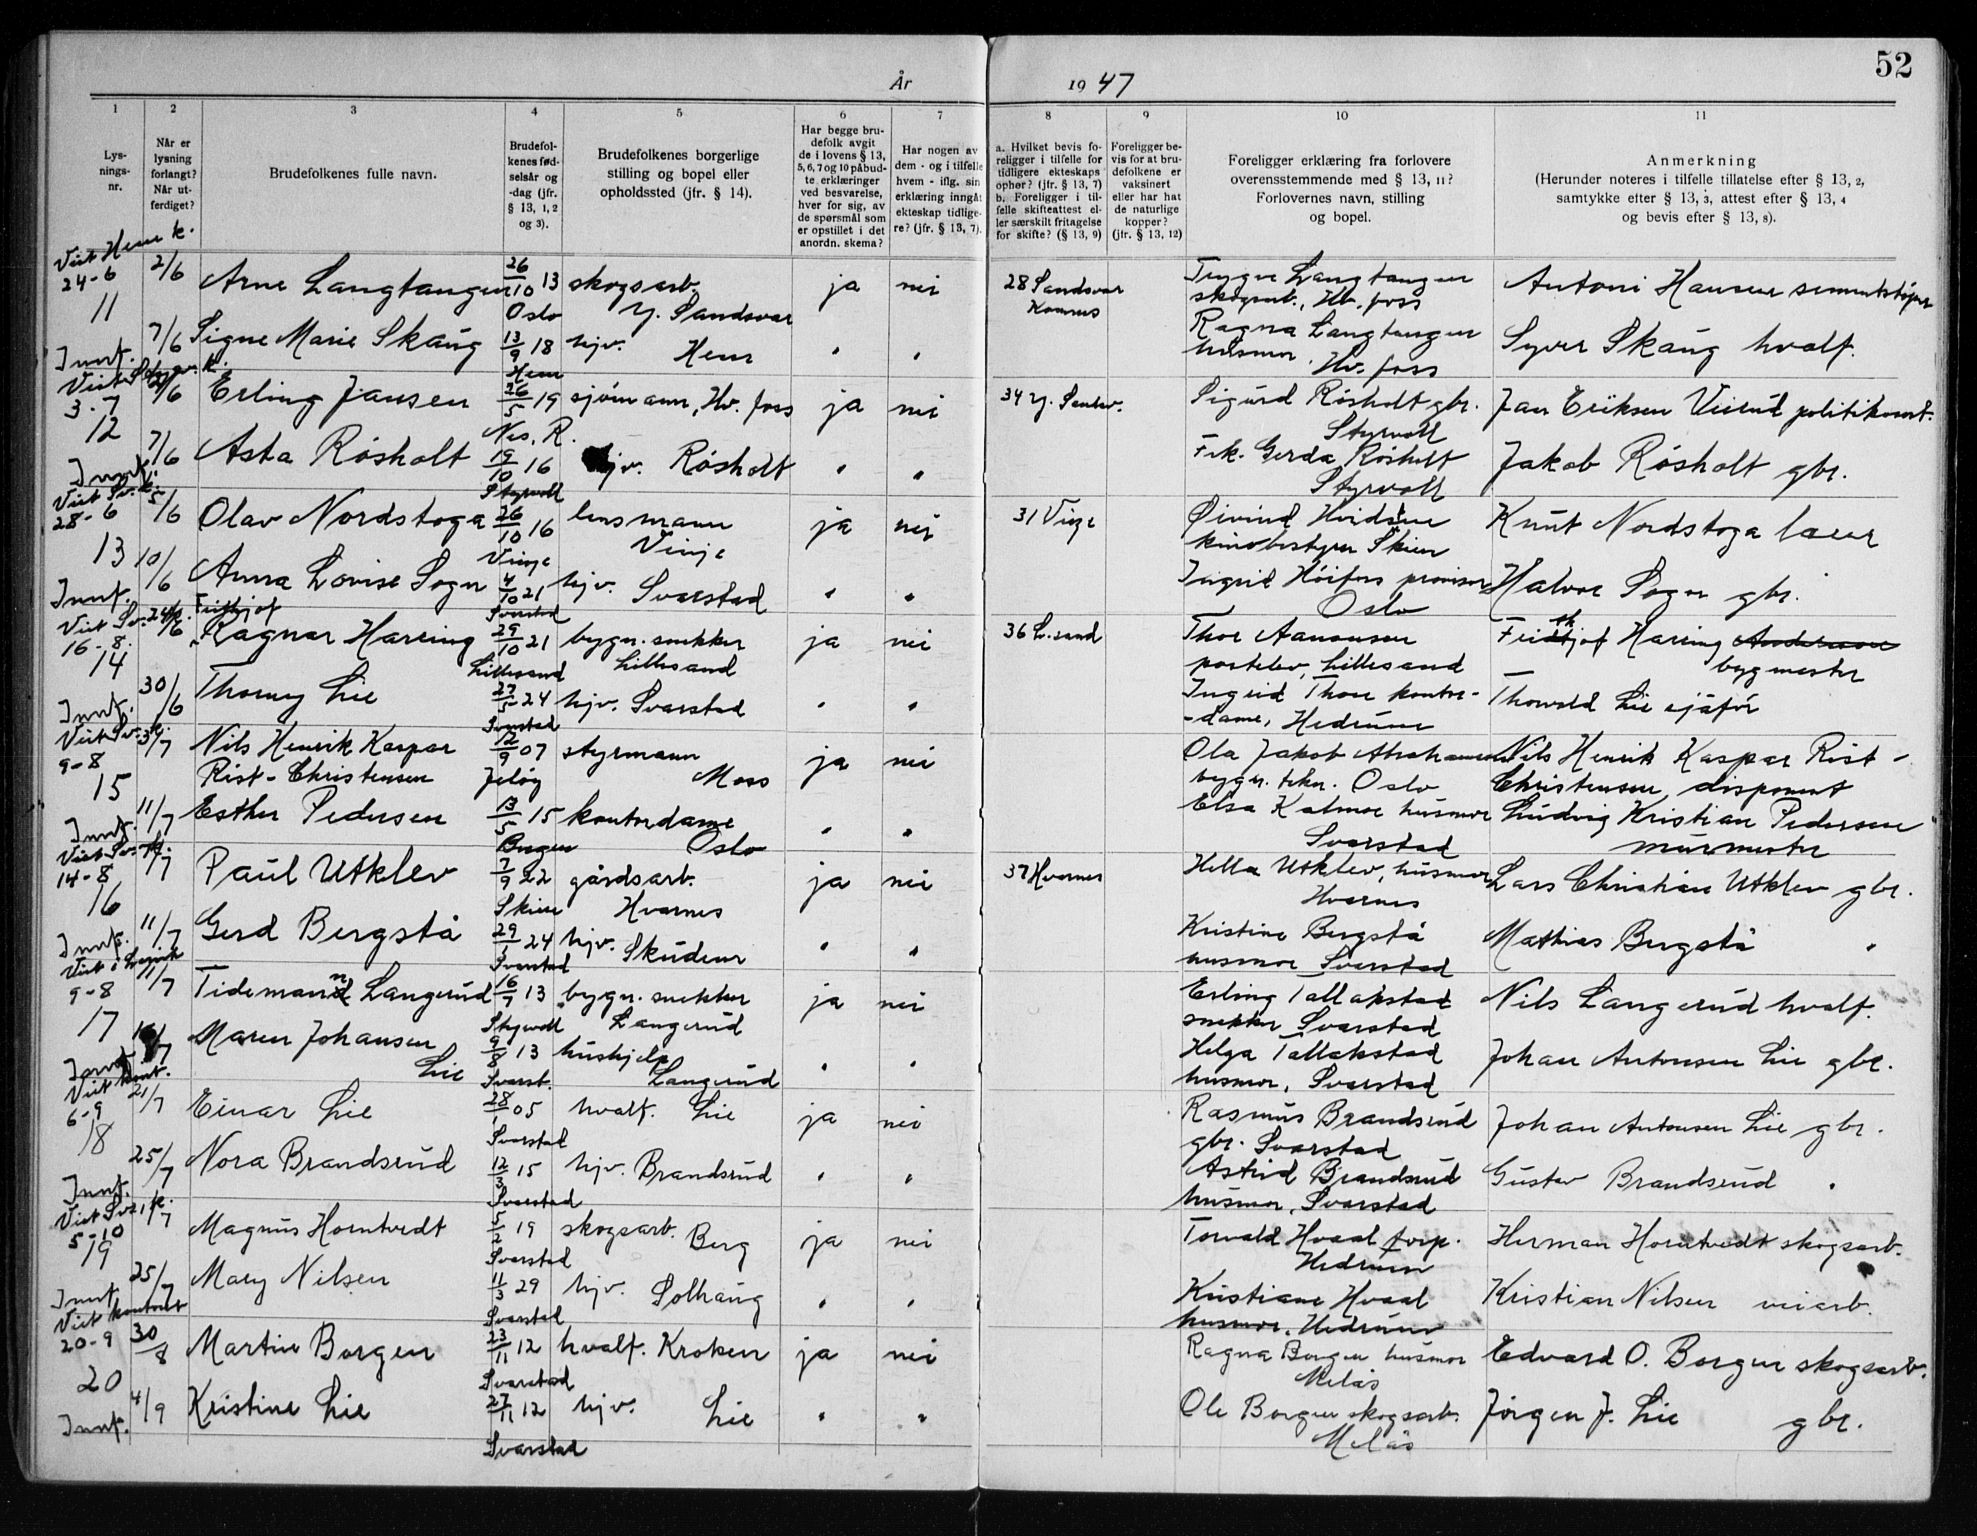 52
År 1947
1
2
3
4
5
6
7
8
9
10
11
Lys-
nings-
nr.
Når er
lysning
forlangt?
Når ut-
ferdiget?
Brudefolkenes fulle navn.
Brudefol-
kenes fød-
selsår og
-dag (jfr.
§ 13, 1, 2
og 3).
Brudefolkenes borgerlige
stilling og bopel eller
opholdssted (jfr. § 14).
Har begge bru-
defolk avgit
de i lovens § 13,
5, 6, 7 og 10 påbud-
te erklæringer
ved besvarelse,
hver for sig, av
de spørsmål som
er opstillet i det
anordn. skema?
Har nogen av
dem - og i tilfelle
hvem - iflg. sin
erklæring inngåt
ekteskap tidlige-
re? (jfr. § 13, 7).
a. Hvilket bevis fo-
religger i tilfelle for
tidligere ekteskaps
ophør? (jfr. § 13, 7)
b. Foreligger i til-
felle skifteattest el-
ler særskilt fritagelse
for skifte? (§ 13, 9)
Foreligger be-
vis for at bru-
defolkene er
vaksinert
eller har hat
de naturlige
kopper?
(jfr. § 13, 12)
Foreligger erklæring fra forlovere
overensstemmende med § 13, 11?
Forlovernes navn, stilling
og bopel.
Anmerkning
(Herunder noteres i tilfelle tillatelse efter § 13, 2,
samtykke efter § 13, 3, attest efter § 13, 4
og bevis efter § 13, 8).
Viet Hem k.
24-6 2/6 Arne Langtangen 26/10 13 skogsarb. ja nei 28 Sandsvær Trygve Langtangen Antoni Hansen sementstøper
11 Oslo Y. Sandsvær Komnes skogsarb., Hv.foss
7/6 Signe Marie Skaug 13/9 18 hjv. Hem " " Ragna Langtangen Syver Skaug hvalf.
Innf. Hem husmor, Hv.foss
Viet
3-7 2/6 Erling Jansen 26/5 19 sjømann, Hv.foss ja nei 34 Y. Sandsv. Sigurd Røsholt gbr. Jan Eriksen Vierud politikonst.
12 Nes, R. Styrvoll
7/6 Asta Røsholt 19/10 16 hjv. Røsholt " " Frk. Gerda Røsholt Jakob Røsholt gbr.
Innf. Styrvoll Styrvoll
Viet Sv. k.
28-6 5/6 Olav Nordstoga 26/10 16 lensmann ja nei 31 Vinje Øivind Hvidsten Knut Nordstoga lærer
13 Vinje Vinje kinobestyrer Skien
10/6 Anna Lovise Sogn 4/10 21 hjv. Svarstad " " Ingrid Höifoss provisor Halvor Sogn gbr.
Innf. Svarstad Oslo
Viet Sv. 24/6 Fritjof
16-8. Ragnar Harring 29/10 21 bygn. snekker ja nei 36 L.sand Thor Aanonsen Fridthjof Harring Andersen
14 Lillesand Lillesand postelev, Lillesand bygmester
30/6 Thorny Lie 27/5 24 hjv. Svarstad " " Ingrid Thon kontor- Thorvald Lie sjåfør
Innf. Svarstad -dame, Hedrum
Viet Sv. k.
9-8 3/7 Nils Henrik Kaspar 12/9 07 styrmann ja nei Ola Jakob Abrahamsen Nils Henrik Kaspar Rist-
15 Rist-Christensen Jeløy Moss bygn. tekn. Oslo Christensen, disponent
11/7 Esther Pedersen 13/5 15 kontordame " " Elsa Katmoe husmor Ludvig Kristian Pedersen
Innf. Bergen Oslo Svarstad murmester
Viet Sv. k.
14-8 /7 Paul Utklev 7/9 22 gårdsarb. ja nei 37 Hvarnes Hella Utklev, husmor Lars Christian Utklev gbr.
16 Skien Hvarnes Hvarnes
11/7 Gerd Bergstå 29/1 24 hjv. Skuden " " Kristine Bergstå Mathias Bergstå "
Innf. Svarstad husmor Svarstad
Viet i Larvik
9-8 11/7 Tidemann Langerud 16/7 13 bygn. snekker ja nei Erling Tallakstad Nils Langerud hvalf.
17 Styrvoll Langerud snekker Svarstad
/7 Maren Johansen 9/8 13 hushjelp " " Helga Tallakstad Johan Antonsen Lie gbr.
Innf. Lie Svarst. Langerud husmor, Svarstad
Viet kont.
6-9 21/7 Einar Lie 28/1 05 hvalf. Lie ja nei Rasmus Brandsrud Johan Antonsen Lie gbr.
18 Svarstad gbr. Svarstad
25/7 Nora Brandsrud 12/3 15 hjv. Brandsrud " " Astrid Brandsrud Gustav Brandsrud "
Innf. Svarstad husmor, Svarstad
Viet Sv. k.
5-10 21/7 Magnus Horntvedt 5/2 19 skogsarb. Berg ja nei Torvald Hvaal forp. Herman Horntvedt skogsarb.
19 Svarstad Hedrum
25/7 Mary Nilsen 11/3 29 hjv. Solhaug " " Kristiane Hvaal Kristian Nilsen veiarb.
Innf. Svarstad husmor, Hedrum
Viet kontoret
20-9 30/8 Martin Borgen 23/11 12 hvalf. Kroken ja nei Ragna Borgen husmor Edvard O. Borgen skogsarb.
20 Svarstad Melås
4/9 Kristine Lie 27/11 12 hjv. Lie " " Ole Borgen skogsarb. Jörgen J. Lie gbr.
Innf. Svarstad Melås